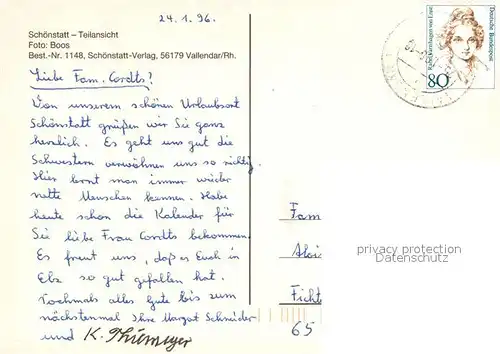 24.1.96.
Schönstatt – Teilansicht
Foto: Boos
Best.-Nr. 1148, Schönstatt-Verlag, 56179 Vallendar/Rh.
Deutsche Bundespost
80
Liebe Fam. Cordts!
Von unserem schönen Urlaubsort
Schönstatt grüßen wir Sie ganz
herzlich. Es geht uns gut die
Schwestern verwöhnen uns so richtig.
Hier lernt man immer wieder
nette Menschen kennen. Habe
heute schon die Kalender für
Sie liebe Frau Cordts bekommen.
Es freut uns, daß es Euch in
Elz so gut gefallen hat.
Nochmals alles Gute bis zum
nächstenmal Ihre Margot Schneider
und K. Thümeyer
Fam
Aloi
Ficht
65
privacy protection
Daten­schutz